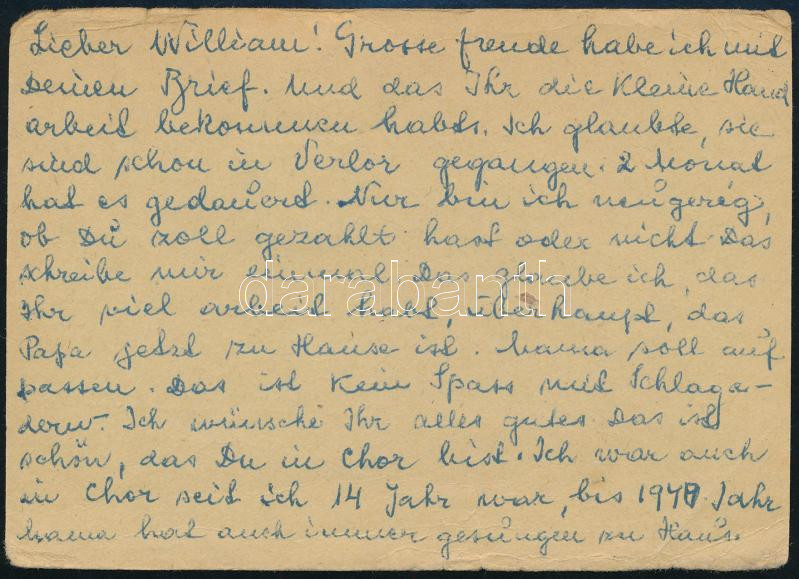 Lieber William! Grosse freude habe ich mit
Deinen Brief. Und das Ihr die Kleine Hand
arbeit bekommen habts. Ich glaubte, sie
sind schon in Verlor gegangen. 2 Monat
hat es gedauert. Nur bin ich neugereg,
ob Du zoll gezahlt hast oder nicht Das
schreibe mir einmal Das glaube ich, das
Ihr viel arbeit habt, überhaupt, das
Papa jetzt zu Hause ist. Mama soll auf
passen. Das ist Kein Spass mit Schlaga-
dern. Ich wünsche Ihr alles gutes Das ist
schön, das Du in Chor bist. Ich war auch
in Chor seit ich 14 Jahr war, bis Jahr
Mama hat auch immer gesungen zu Haus.
darabanth